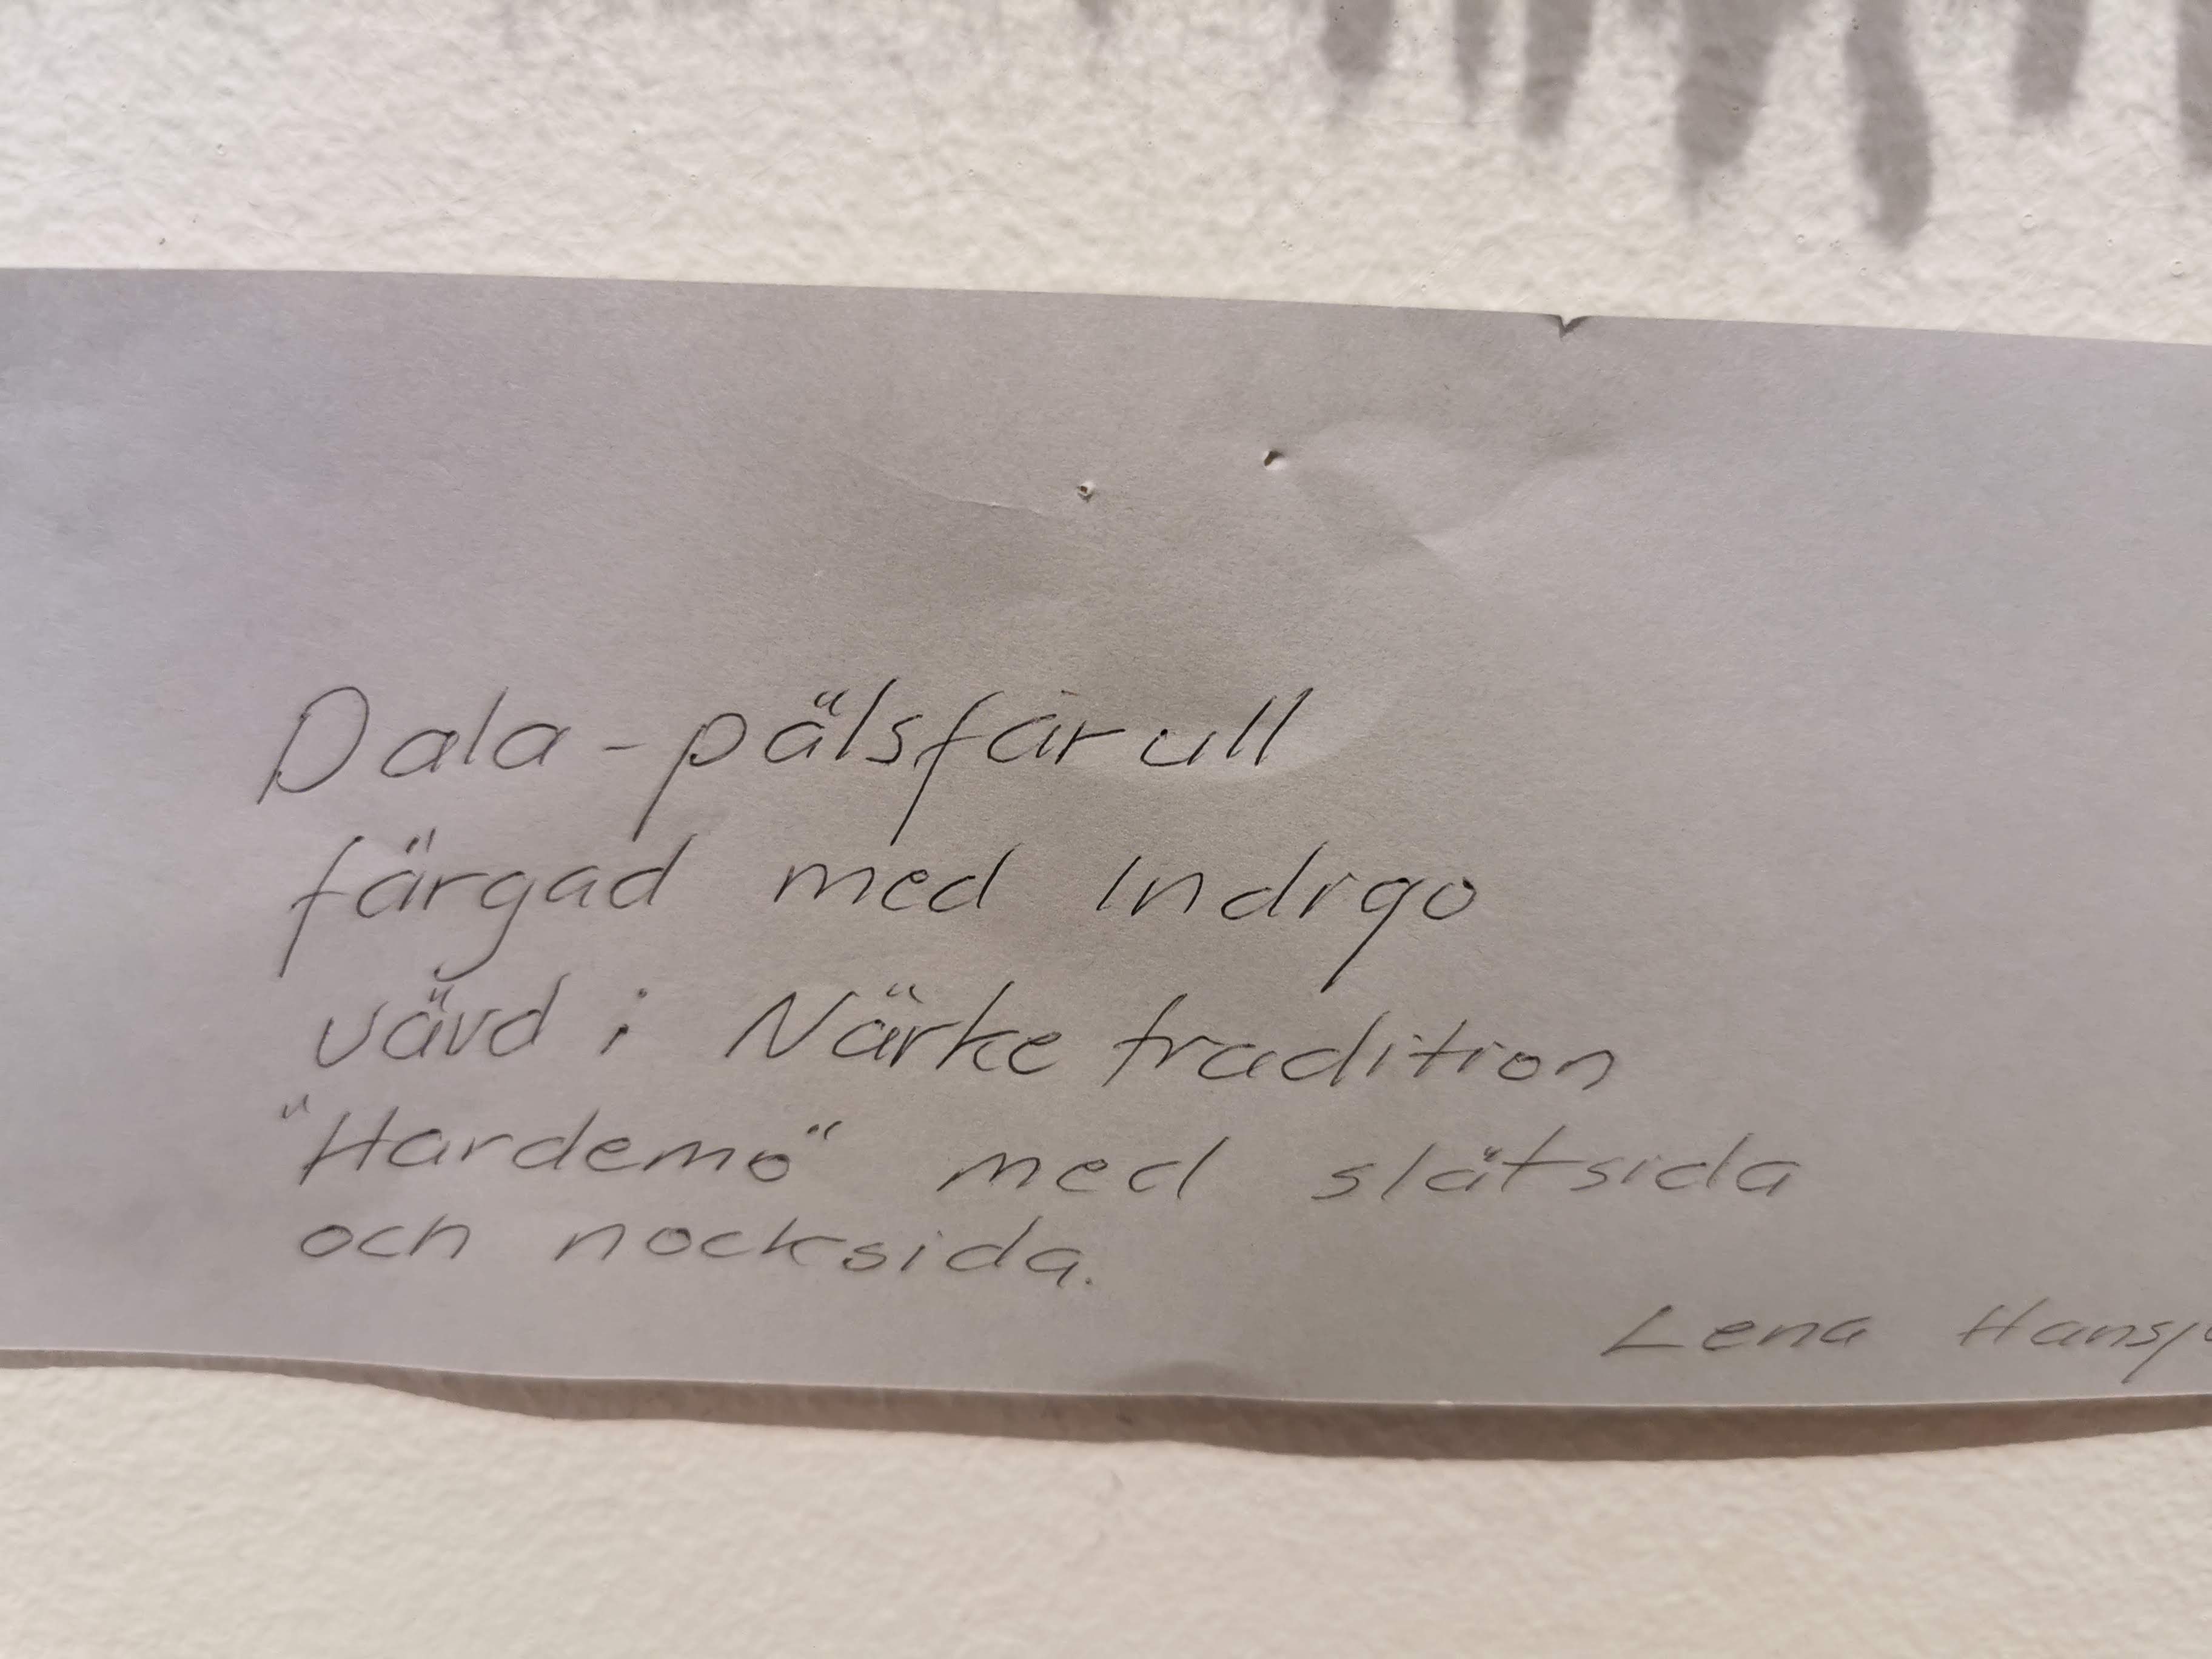 Dala-pälsfårull
färgad med Indigo
vävd i Närke tradition
"Hardemo" med slätsida
och nocksida.
Lena